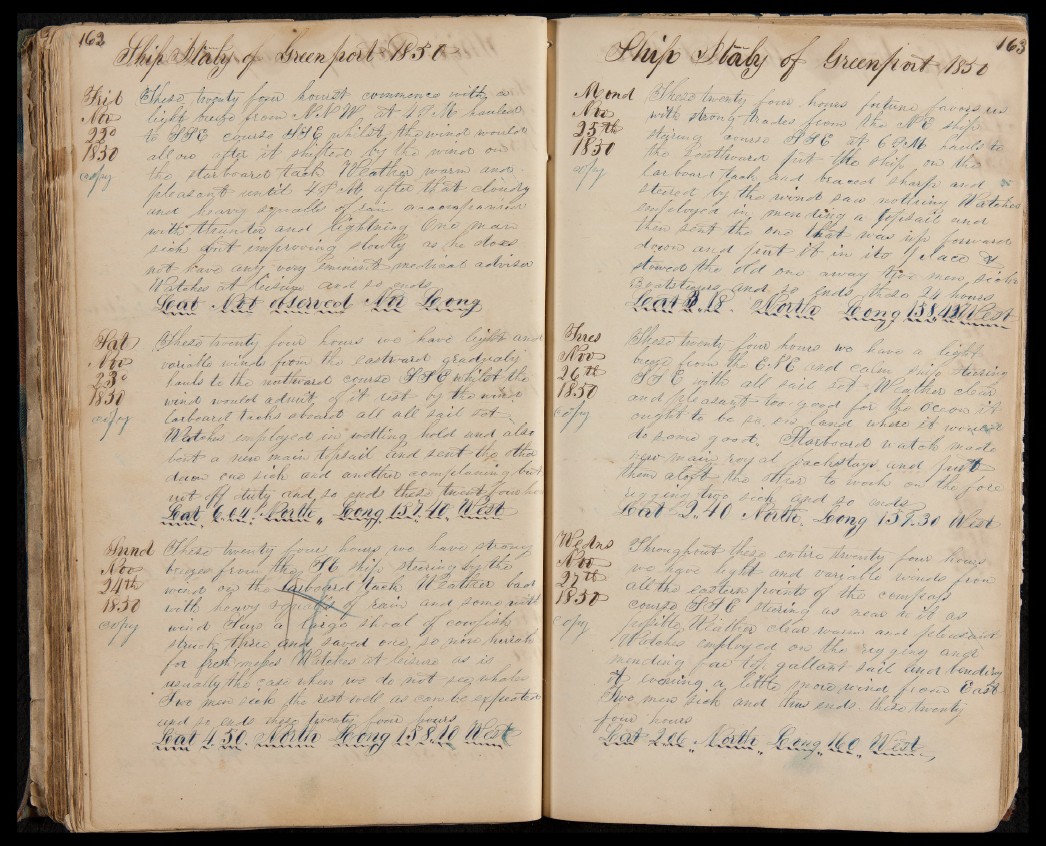 162
Ship Italy of Greenport 1850
Frid
Nov
22d
1850
copy
These twenty four hours commence with a
light breeze from N.N.W. at 4 P.M. hauled
to SSE course SSE whilst the wind would
allow after it shifted by the wind on
the starboard tack Weather warm and
pleasant until 4 P.M. after that cloudy
and heavy squalls of rain accompanied
with thunder and lightning One man
sick but improving slowly as he does
not have any very eminent medical adviser
Watches at leisure and so ends
Leat Not observed Nor Long
Sat
Nov
23d
1850
copy
These twenty four hours we have light and
variable winds from the eastward gradualy
hauls to the northward course SSE whilst the
wind would admit of it rest by the wind
Larboard tacks aboard all all sail set
Watches employed in wetting hold and also
bent a new main topsail and sent the other
down one sick and another complaining but
not off duty and so ends these twenty four hours
Leat 6.04 North Long 157.40 West
Sund
Nov
24th
1850
copy
These twenty four hours we have strong
breezes from the ship steering by the
wind on the Larboard Tack Weather bad
with heavy squalls of rain and some with
wind Saw a Large shoal of cowfish
struck three and saved one so now hurrah
for fresh messes Watches at leisure as is
usually the case when we do not see whales
Two men sick the rest well as can be expected
and so ends these twenty four hours
Leat 4.50 North Long 158.10 West
163
Ship Italy of Greenport 1850
Mond
Nov
25th
1850
copy
These twenty four hours fortune favors us
with strong trades from the NE ship
steering course SSE at 6 PM hauls to
the Southward put the ship on the
Larboard tack and braced sharp and
steered by the wind saw nothing Watches
employed in mending a topsail and
then sent the one that was up forward
down and put it in its place &
stowed the old one away two men sick
Boatsteerers and so ends these 24 hours
Leat 3.18 North Long 158.47 West
Tues
Nov
26th
1850
Copy
These twenty four hours we have a light
breeze from the E.N.E. and calm ship steering
SSE with all sail set Weather clear
and pleasant too good for the Ocean it
ought to be on land where it would
do some good Starboard watch made
new main royal backstays and put
them aloft the other to work on the fore
rigging two sick and so ends
Leat 2.40 North Long 159.30 West
Wedns
Nov
27th
1850
Copy
Throughout these entire twenty four hours
we have light and variable winds from
all the eastern points of the compass
course SSE steering as near to it as
possible Weather clear warm and pleasant
Watches employed on the rigging and
mending fore top gallant sail and bending
it evening a little more wind from East
Two men sick and thus ends these twenty
four hours
Leat 2.06 North Long 160 West